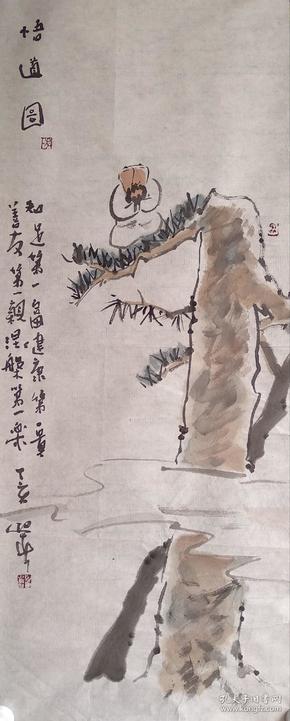 悟道图
知足第一富健康第一贵
善友第一亲涅槃第一乐 丁亥
孔夫子旧书网